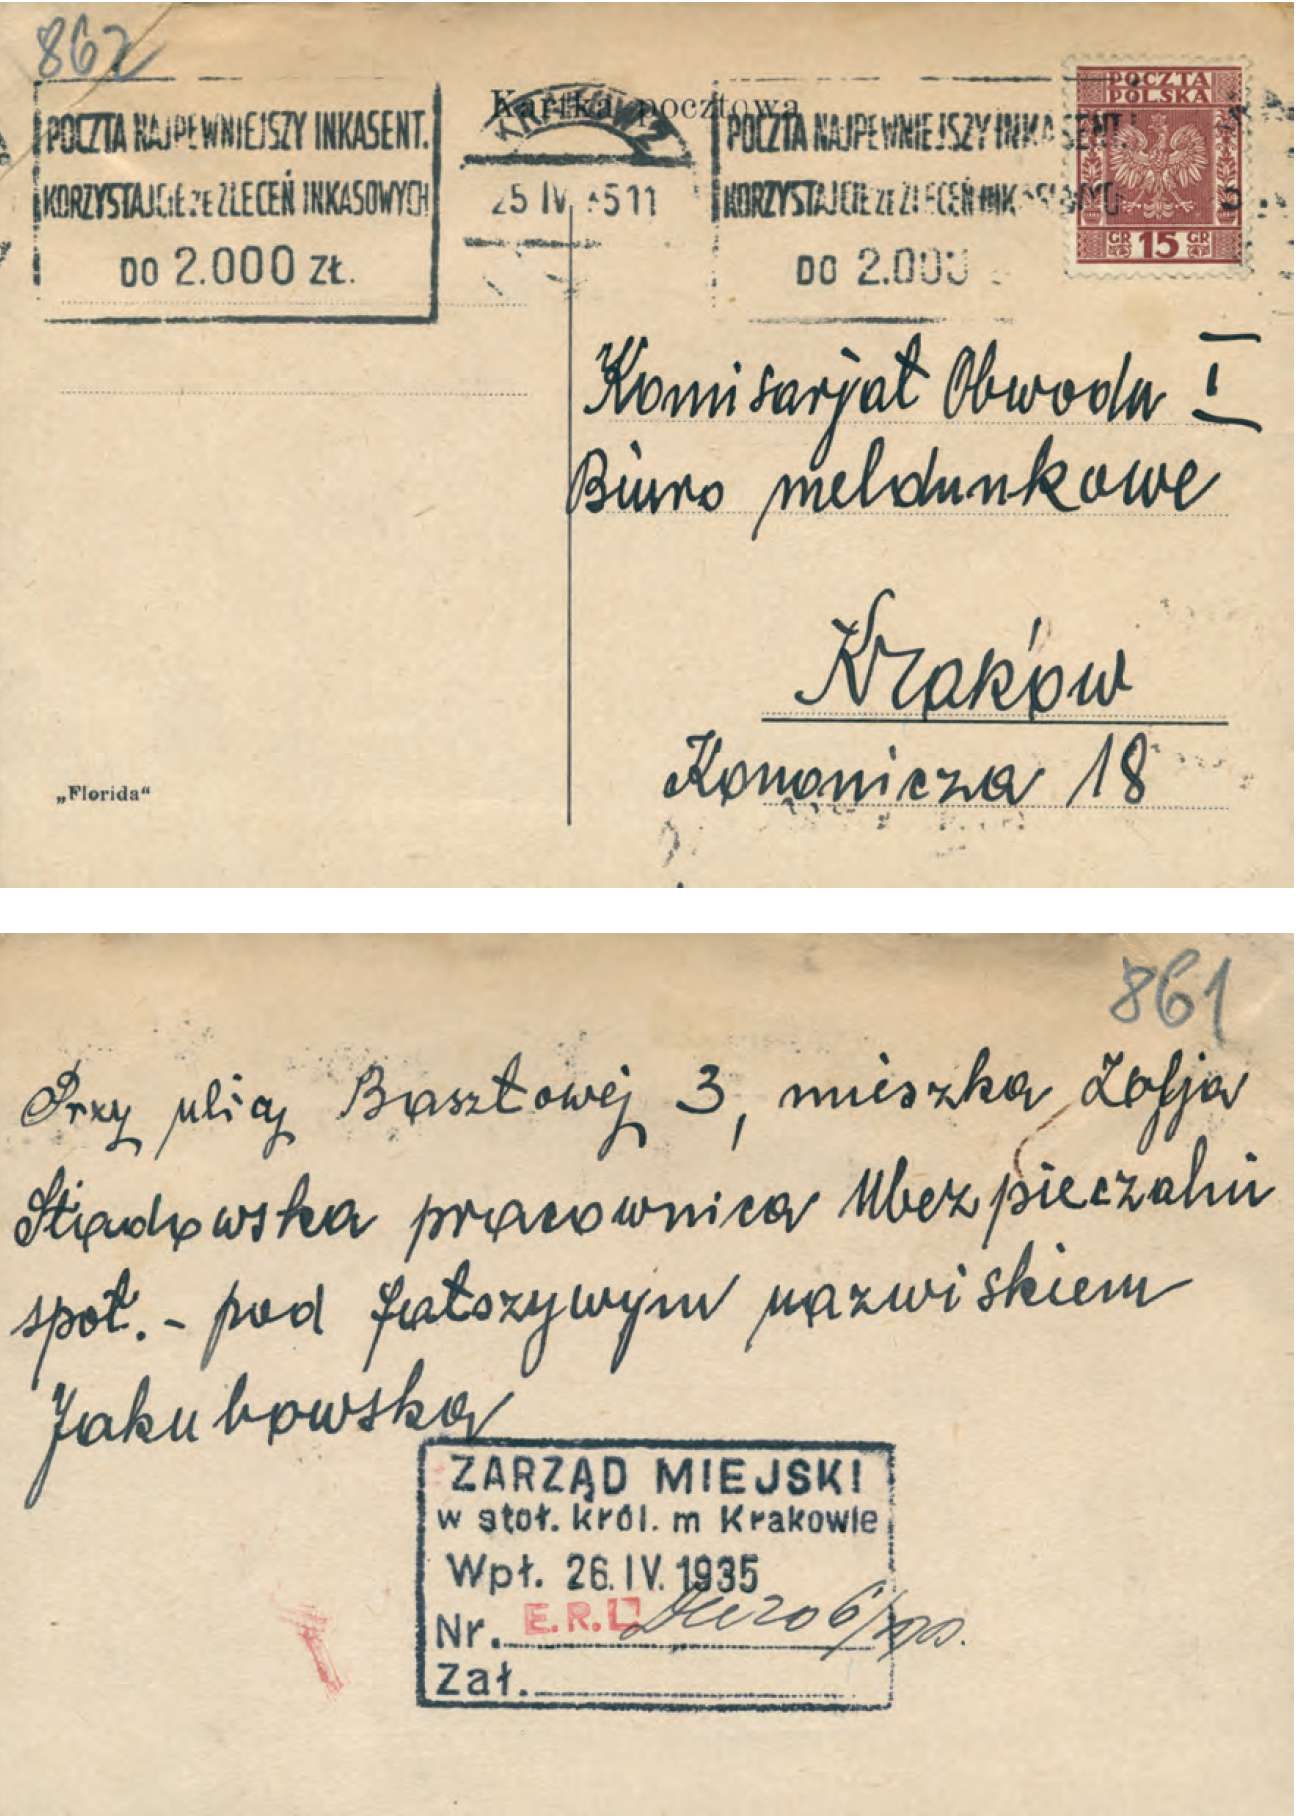 862
Kartka pocztowa
POCZTA NAJPEWNIEJSZY INKASENT.
KORZYSTAJCIE ZE ZLECEŃ INKASOWYCH
DO 2.000 ZŁ.
25 IV 35 11
POCZTA NAJPEWNIEJSZY INKASENT.
KORZYSTAJCIE ZE ZLECEŃ INKASOWYCH
DO 2.000
POCZTA
POLSKA
GR 15 GR
Komisarjat Obwodu I
Biuro meldunkowe
Kraków
Kanonicza 18
„Florida“
861
Przy ulicy Basztowej 3, mieszka Zofja
Stadowska pracownica Ubezpieczalni
społ. - pod fałszywym nazwiskiem
Jakubowska
ZARZĄD MIEJSKI
w stoł. król. m Krakowie
Wpł. 26.IV.1935
Nr. E.R.L
Zał.